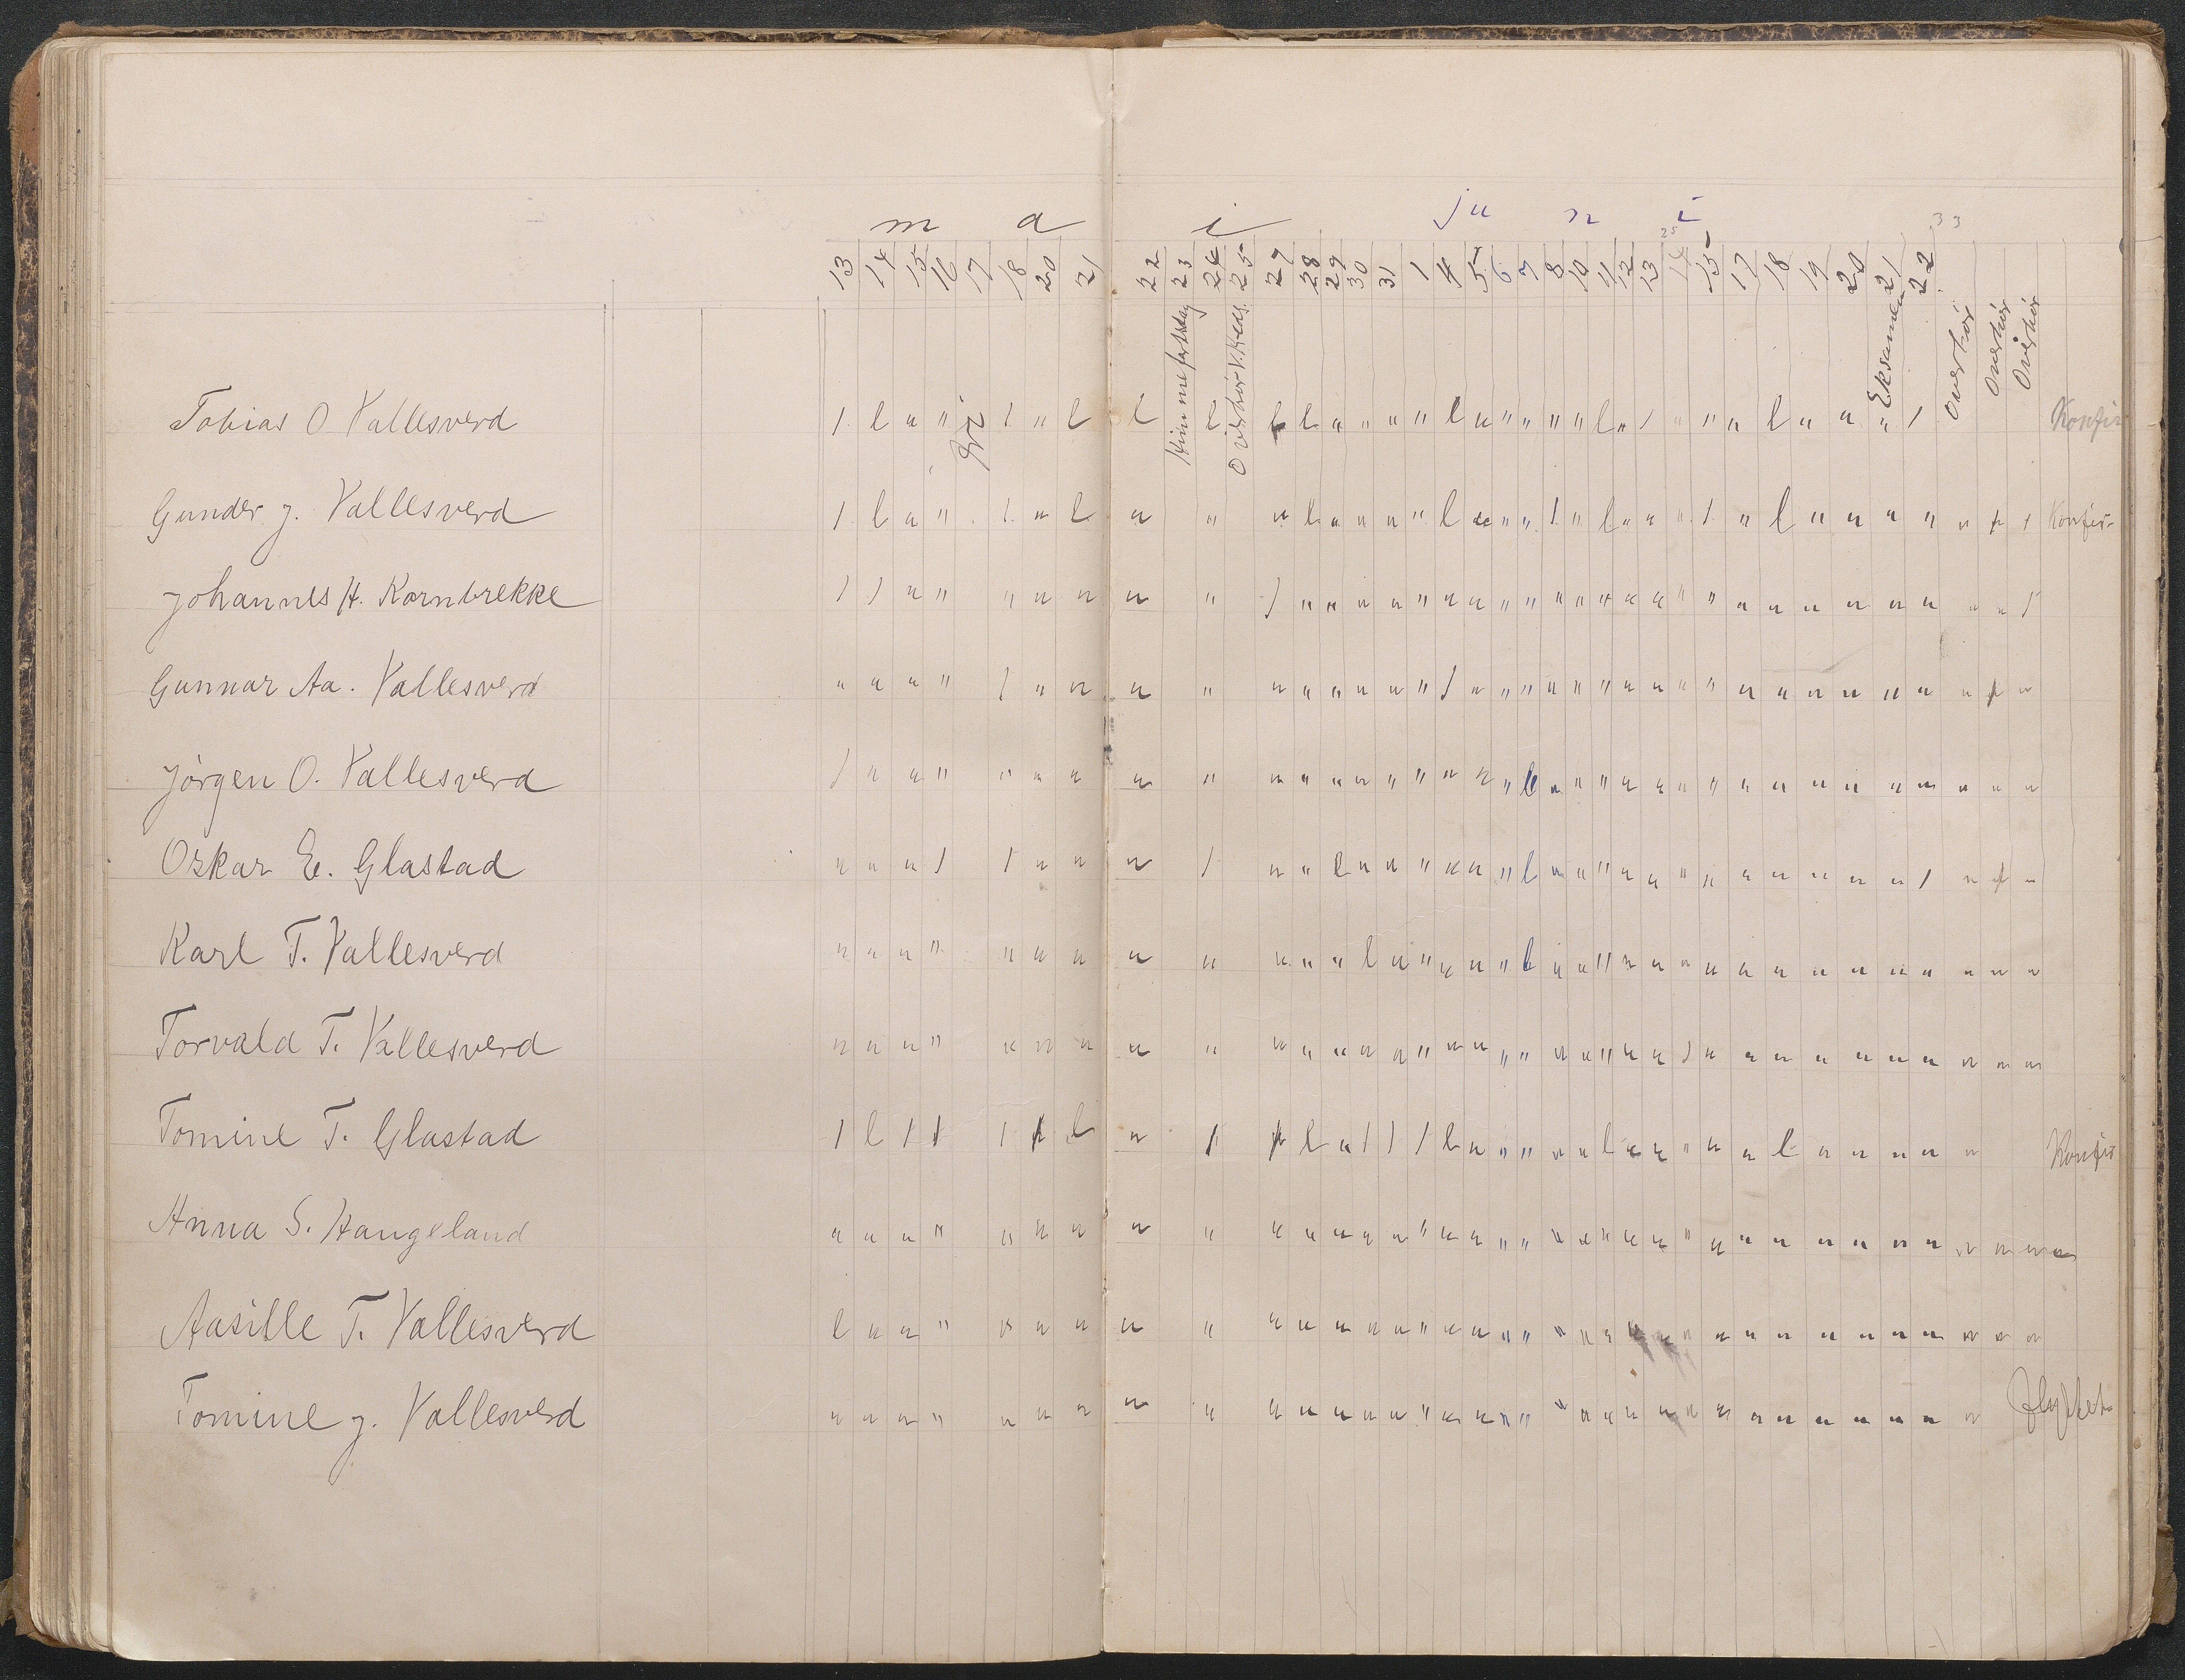 m a i ju n i
25 33
13 14 15 16 17 18 20 21 22 23 24 25 27 28 29 30 31 1 4 5 6 7 8 10 11 12 13 14 15 17 18 19 20 21 22
fri Himmelfartsdag Eksamen Overhør Overhør Overhør
Tobias O Vallesverd / l " " / " l l l l l " " " " l " " " " " l " / " " " l " " " / Konfir
Gunder J. Vallesverd / l " " / " l " " " l " " " " l " " " / " l " " " / " l " " " " " / / Konfir-
Johannes H. Kornbrekke / / " " " " " " " / " " " " " " " " " " " " " " " " " " " " " " " " /
Gunnar Aa. Vallesverd " " " " / " " " " " " " " " " / " " " " " " " " " " " " " " " " " / "
Jørgen O. Vallesverd / " " " " " " " " " " " " " " " " " l " " " " " " " " " " " " " " " "
Oskar E. Glastad " " " / / " " " / " " l " " " " " " l " " " " " " " " " " " " / " / "
Karl T. Vallesverd " " " " " " " " " " " " l " " " " " l " " " " " " " " " " " " " " " "
Torvald T. Vallesverd " " " " " " " " " " " " " " " " " " " " " " " " / " " " " " " " " " "
Tomine T. Glastad / l / / / / l " / / l " / / / l " " " " " l " " " " " l " " " " " Konfir
Anna S. Haugeland " " " " " " " " " " " " " " " " " " " " " " " " " " " " " " " " " " " "
Aasille T. Vallesverd l " " " " " " " " " " " " " " " " " " " " " " " " " " " " " " " " " "
Tomine J. Vallesverd " " " " " " " " " " " " " " " " " " " " " " " " " " " " " " " " " flyttet